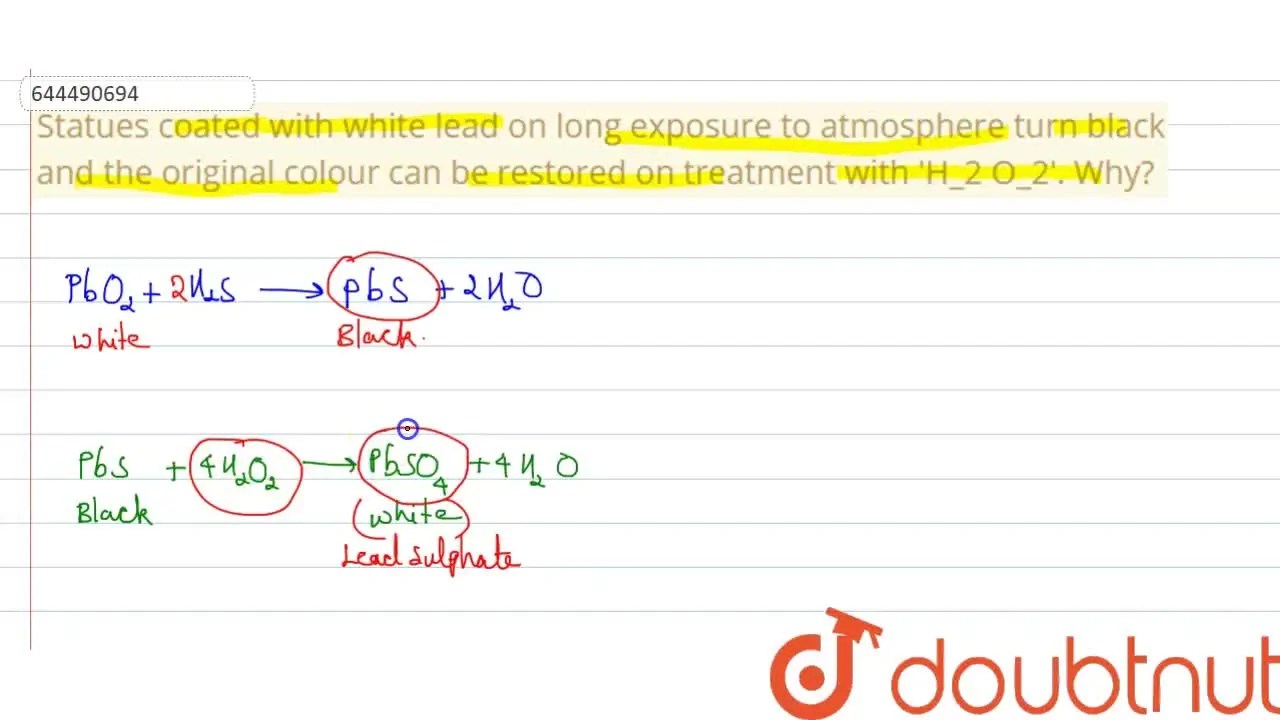 644490694
Statues coated with white lead on long exposure to atmosphere turn black
and the original colour can be restored on treatment with 'H_2 O_2'. Why?
PbO₂ + 2H₂S ⟶ PbS + 2H₂O
white Black.
PbS + 4H₂O₂ ⟶ PbSO₄ + 4H₂O
Black (white)
Lead sulphate
doubtnut